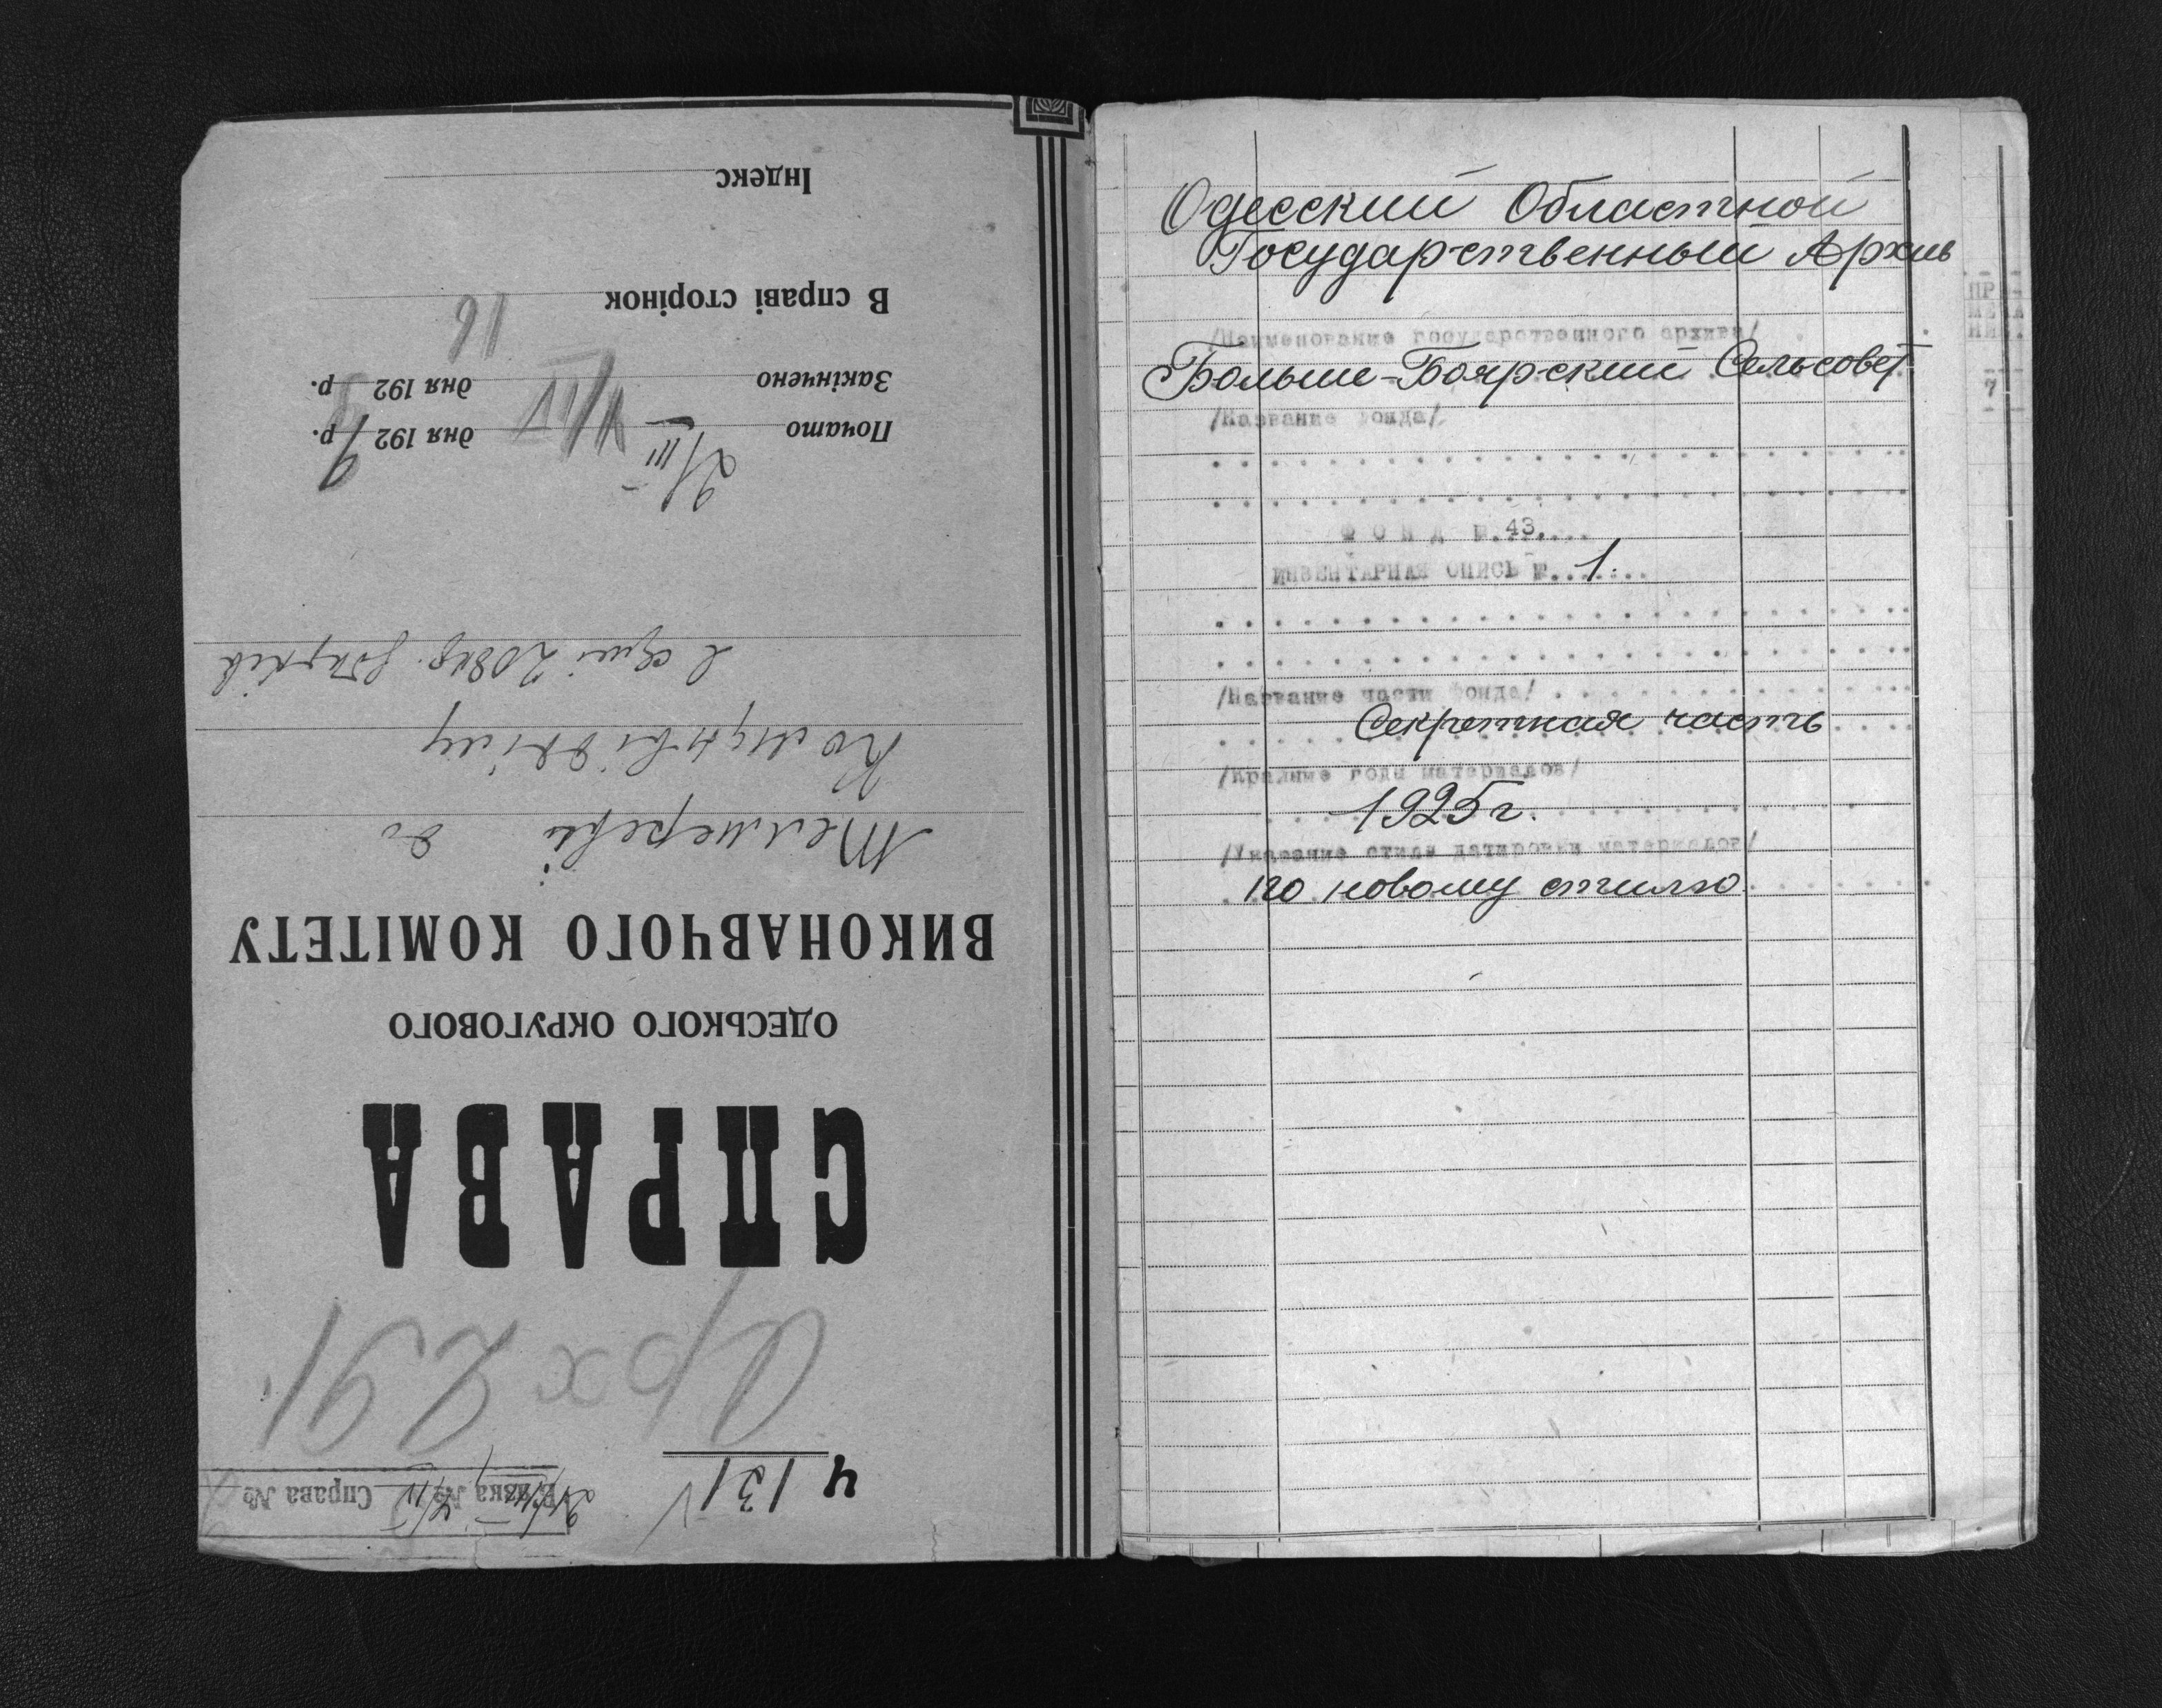 Ч 131
Вязка № Справа №
Арх 291
СПРАВА
ОДЕСЬКОГО ОКРУГОВОГО
ВИКОНАВЧОГО КОМІТЕТУ
до
Почато 21/III дня 192 р.
Закінчено дня 192 р.
В справі сторінок 16
Індекс
Одесский Областной
Государственный Архив
/Наименование государственного архива/
Больше-Боярский Сельсовет
/Название фонда/
ФОНД №.43.
ИНВЕНТАРНАЯ ОПИСЬ №. 1.
/Название части фонда/
Секретная часть
/Крайние годы материалов/
1925 г.
/Указание стиля датировки материалов/
по новому стилю
ПРИ-
МЕЧА
НИЕ.
7